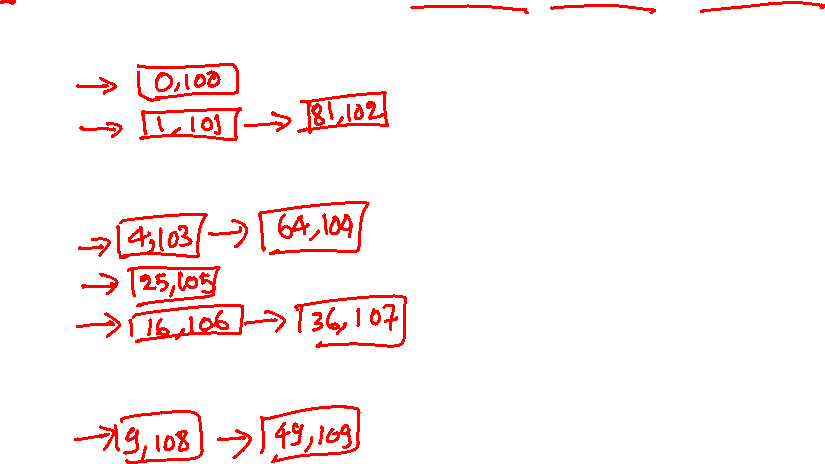 → 0,100
→ 1,101 → 81,102
→ 4,103 → 64,104
→ 25,105
→ 16,106 → 36,107
→ 9,108 → 49,109